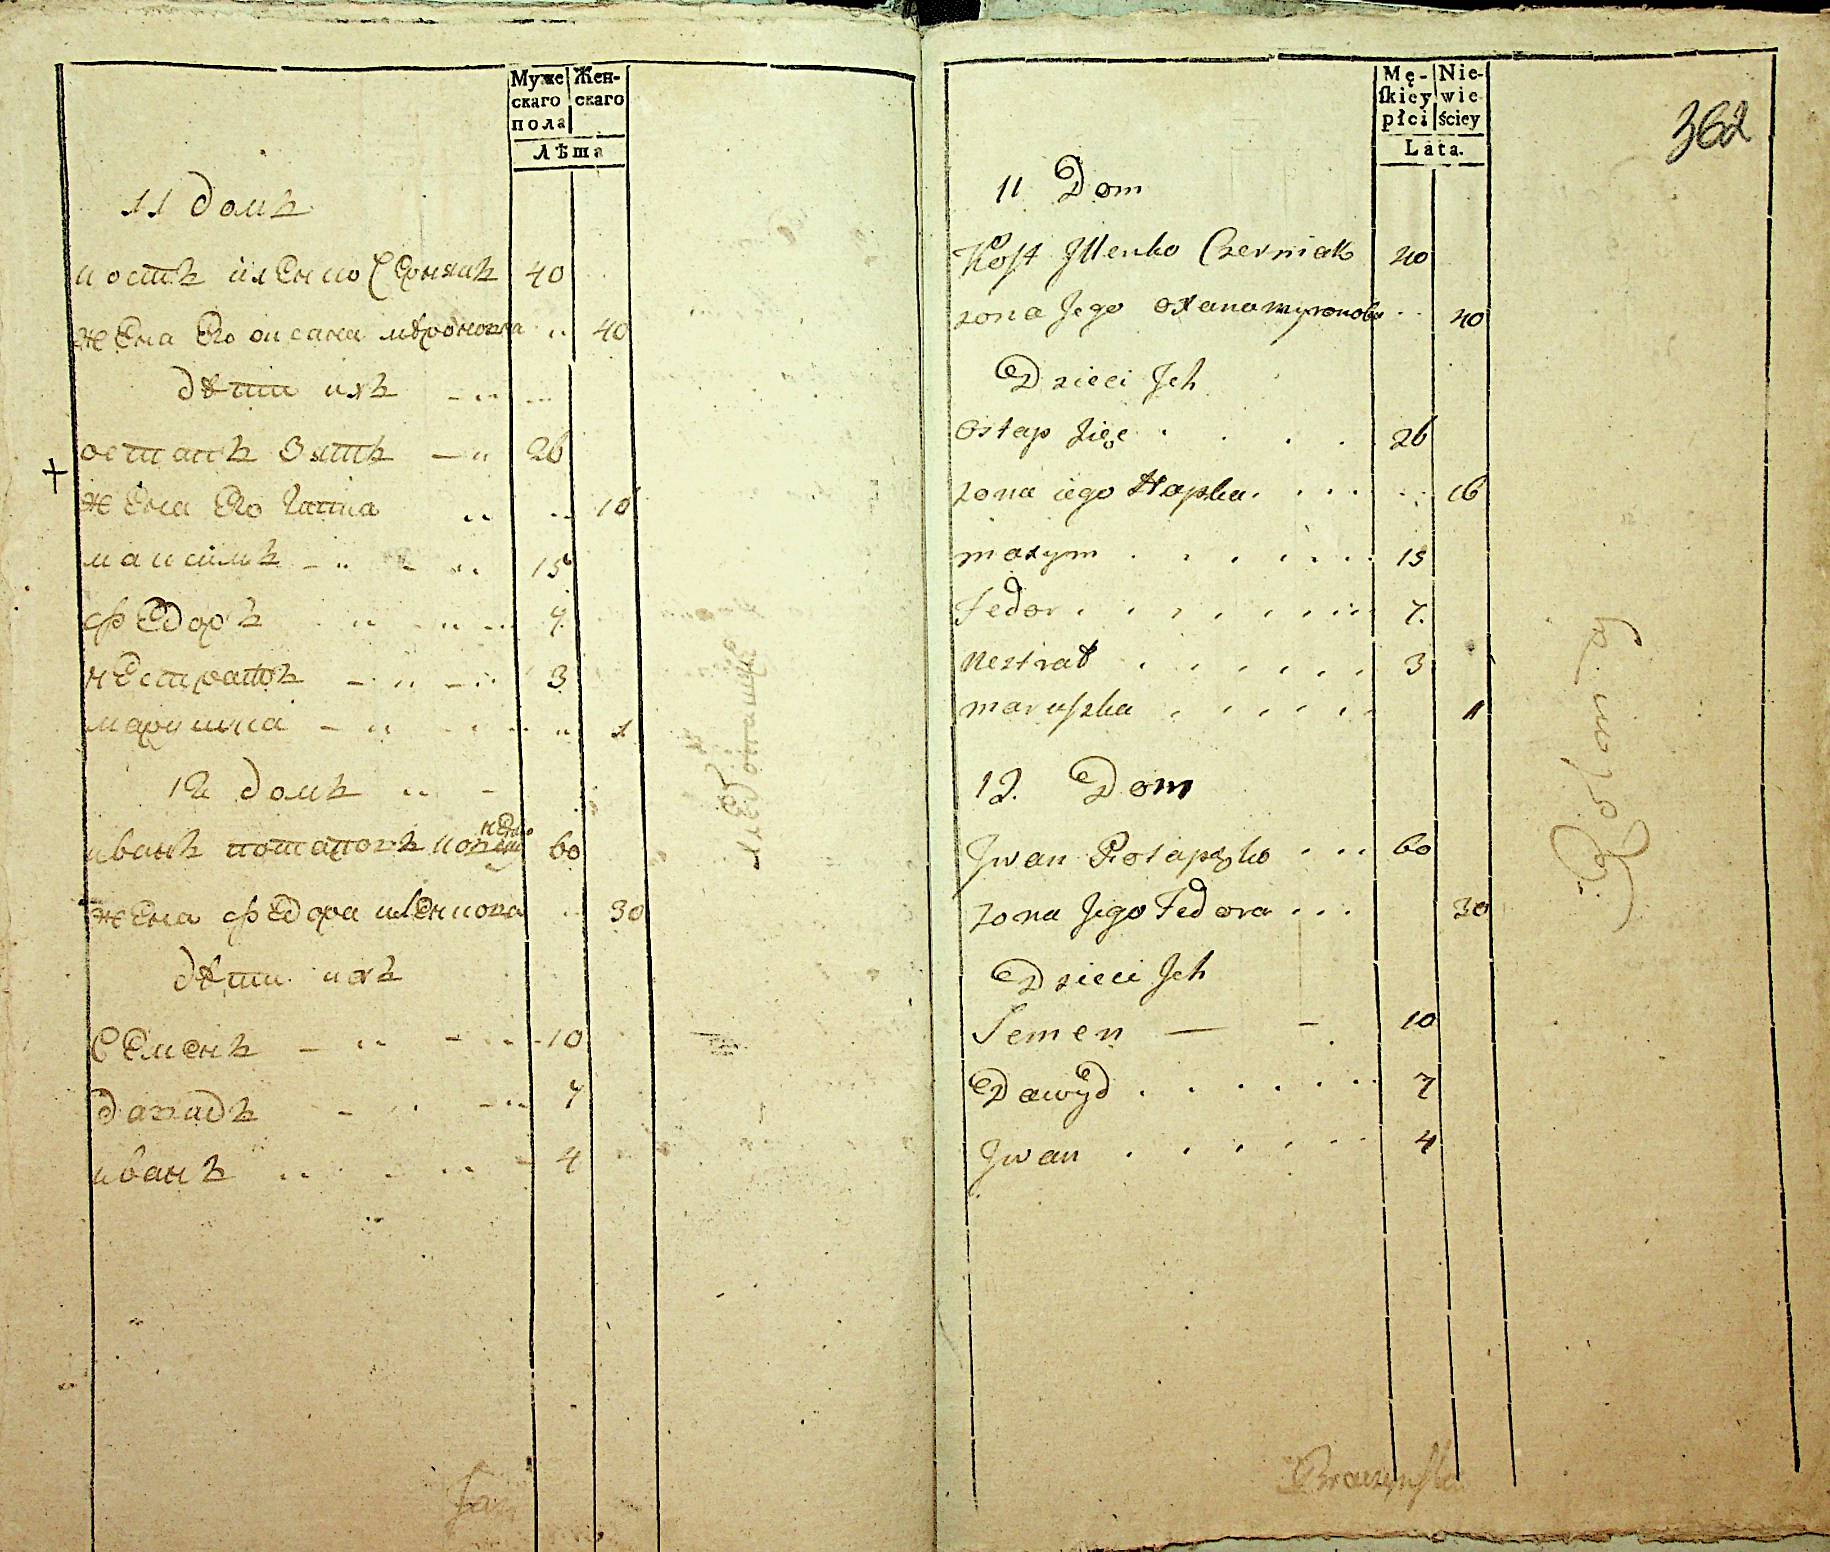 Муже Жен-
скаго скаго
пола
Лѣта
11 домъ
костъ илѣнко Чернякъ 40
жена Его оксана мѣроновна 40
дѣти ихъ
остапъ Зятъ 26
жена Его Гапка 16
максимъ 15
федоръ 7
нестратъ 3
марушка 1
12 домъ
иванъ потаповъ 60
жена федора илѣнкова 30
дѣти ихъ
Семенъ 10
давидъ 7
иванъ 4
Jan
Mę- Nie-
ſkiey wie
płci ściey
Lata.
362
11 Dom
Kost Jllenko Czerniak 40
zona Jego oxana myronowa 40
Dzieci Jch
Ostap Zięc 26
zona iego Hapka 16
maxym 15
Fedor 7.
Nestrat 3
maruszka 1
12. Dom
Jwan Potapęko 60
zona Jego Fedora 30
Dzieci Jch
Semen 10
Dawyd 7
Jwan 4
Braczynſki